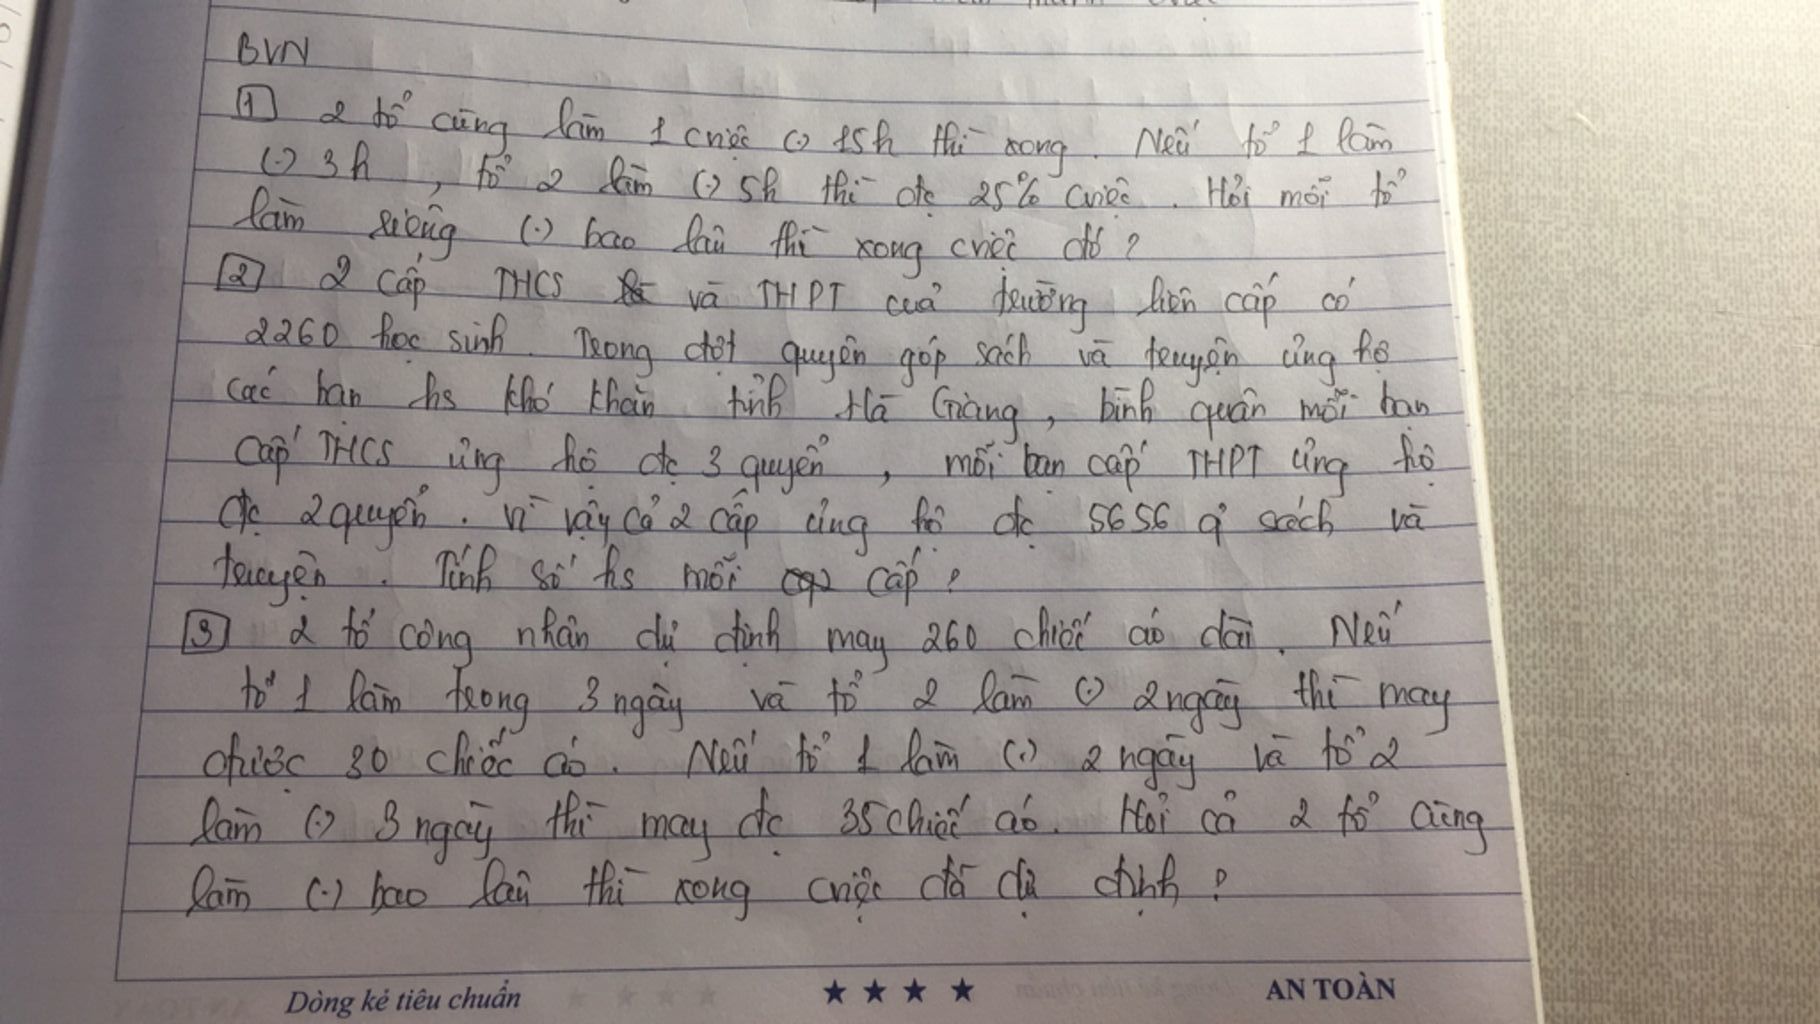 BVN
1 2 tổ cùng làm 1 cviệc (.) 15h thì xong. Nếu tổ 1 làm
(.) 3h, tổ 2 làm (.) 5h thì đc 25% cviệc. Hỏi mỗi tổ
làm riêng (.) bao lâu thì xong cviệc đó?
2 2 cấp THCS và THPT của trường liên cấp có
2260 học sinh. Trong đợt quyên góp sách và truyện ủng hộ
các bạn hs khó khăn tỉnh Hà Giang, bình quân mỗi bạn
cấp THCS ủng hộ đc 3 quyển, mỗi bạn cấp THPT ủng hộ
đc 2 quyển. Vì vậy cả 2 cấp ủng hộ đc 5656 q sách và
truyện. Tính số hs mỗi cấp?
3 2 tổ công nhân dự định may 260 chiếc áo dài. Nếu
tổ 1 làm trong 3 ngày và tổ 2 làm (.) 2 ngày thì may
được 30 chiếc áo. Nếu tổ 1 làm (.) 2 ngày và tổ 2
làm (.) 3 ngày thì may đc 35 chiếc áo. Hỏi cả 2 tổ cùng
làm (.) bao lâu thì xong cviệc đã dự định?
Dòng kẻ tiêu chuẩn ★ ★ ★ ★ AN TOÀN